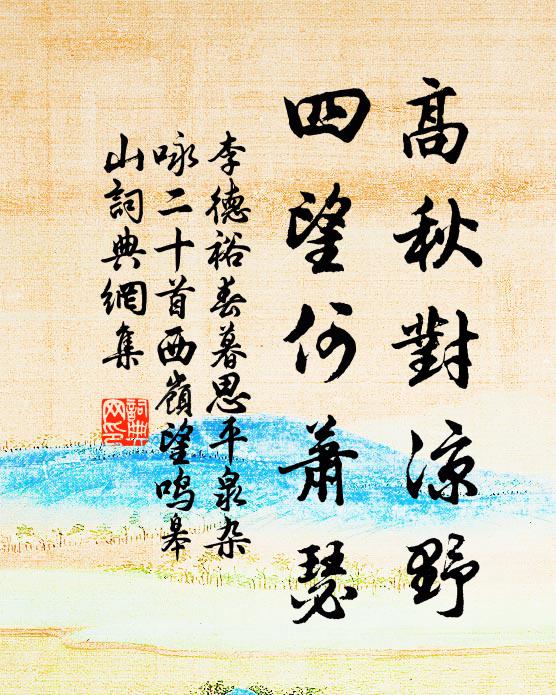 高秋對涼野
四望何蕭瑟
李德裕春暮思平泉杂
咏二十首西嶺望鸣皋
山詞典網集
詞典
网印